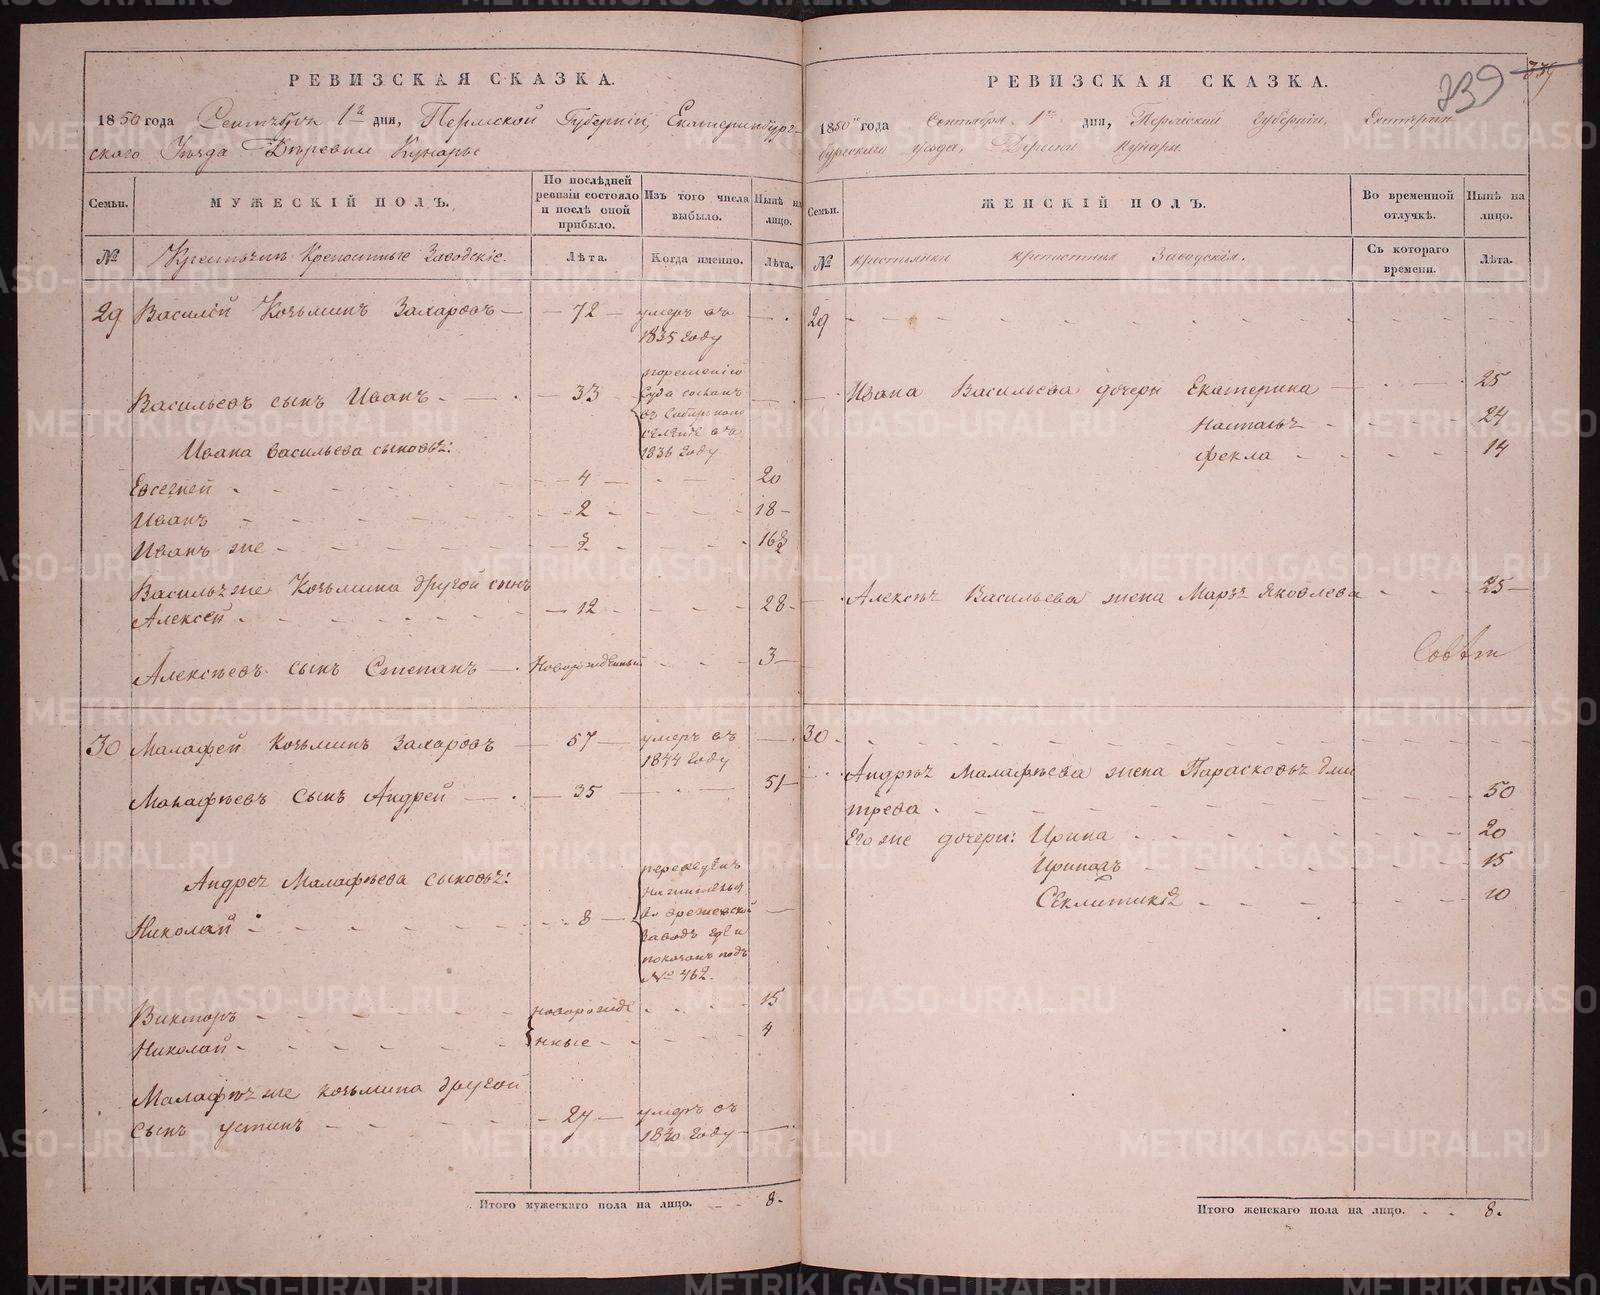 РЕВИЗСКАЯ СКАЗКА.
1850 года Сентября 1го дня, Пермской Губерніи, Екатеринбург-
ского Уезда Деревни Кунары
Семьи.
МУЖЕСКІЙ ПОЛЪ.
По послѣдней
ревизіи состояло
и послѣ оной
прибыло.
Изъ того числа
выбыло.
Нынѣ на
лицо.
№
Крепостные Заводскіе.
Лѣта.
Когда именно.
Лѣта.
29 Василій Козьминъ Захаровъ 72 умеръ въ
1835 году
Васильевъ сынъ Иванъ 33
въ Сибирь на по
селеніе въ
1836 году
Ивана Васильева сыновья:
Евсегней 4 20
Иванъ 2 18
Иванъ же 16 1/2
Васильяже Козьмина другой сынъ
Алексей 12 28
Алексѣевъ сынъ Степанъ Новорожденный 3
30 Малафей Козьминъ Захаровъ 57 умеръ въ
1844 году
Малафѣевъ сынъ Андрей 35 51
Андрея Малафѣева сыновья:
Николай 8
заводъ где и
показанъ подъ
№ 462.
Викторъ новорожде 15
Николай нные 4
Малафѣяже Козьмина другой
сынъ Устинъ 27 умеръ въ
1840 году
Итого мужескаго пола на лицо. 8.
РЕВИЗСКАЯ СКАЗКА.
739
1850 года Сентября 1го дня, Пермской Губерніи, Екатерин
бургскаго уезда, Деревни Кунары.
Семьи.
ЖЕНСКІЙ ПОЛЪ.
Во временной
отлучкѣ.
Нынѣ на
лицо.
№
крестьянки крепостныя Заводскія.
Съ котораго
времени.
Лѣта.
29
Ивана Васильева дочери Екатерина 25
Настасья 24
Фекла 14
Алексѣя Васильева жена Марья Яковлева 25
30
Андрѣя Малафѣева жена Парасковья Дми
трева 50
Его же дочери: Ирина 20
15
10
Итого женскаго пола на лицо. 8.
METRIKI.GASO-URAL.RU